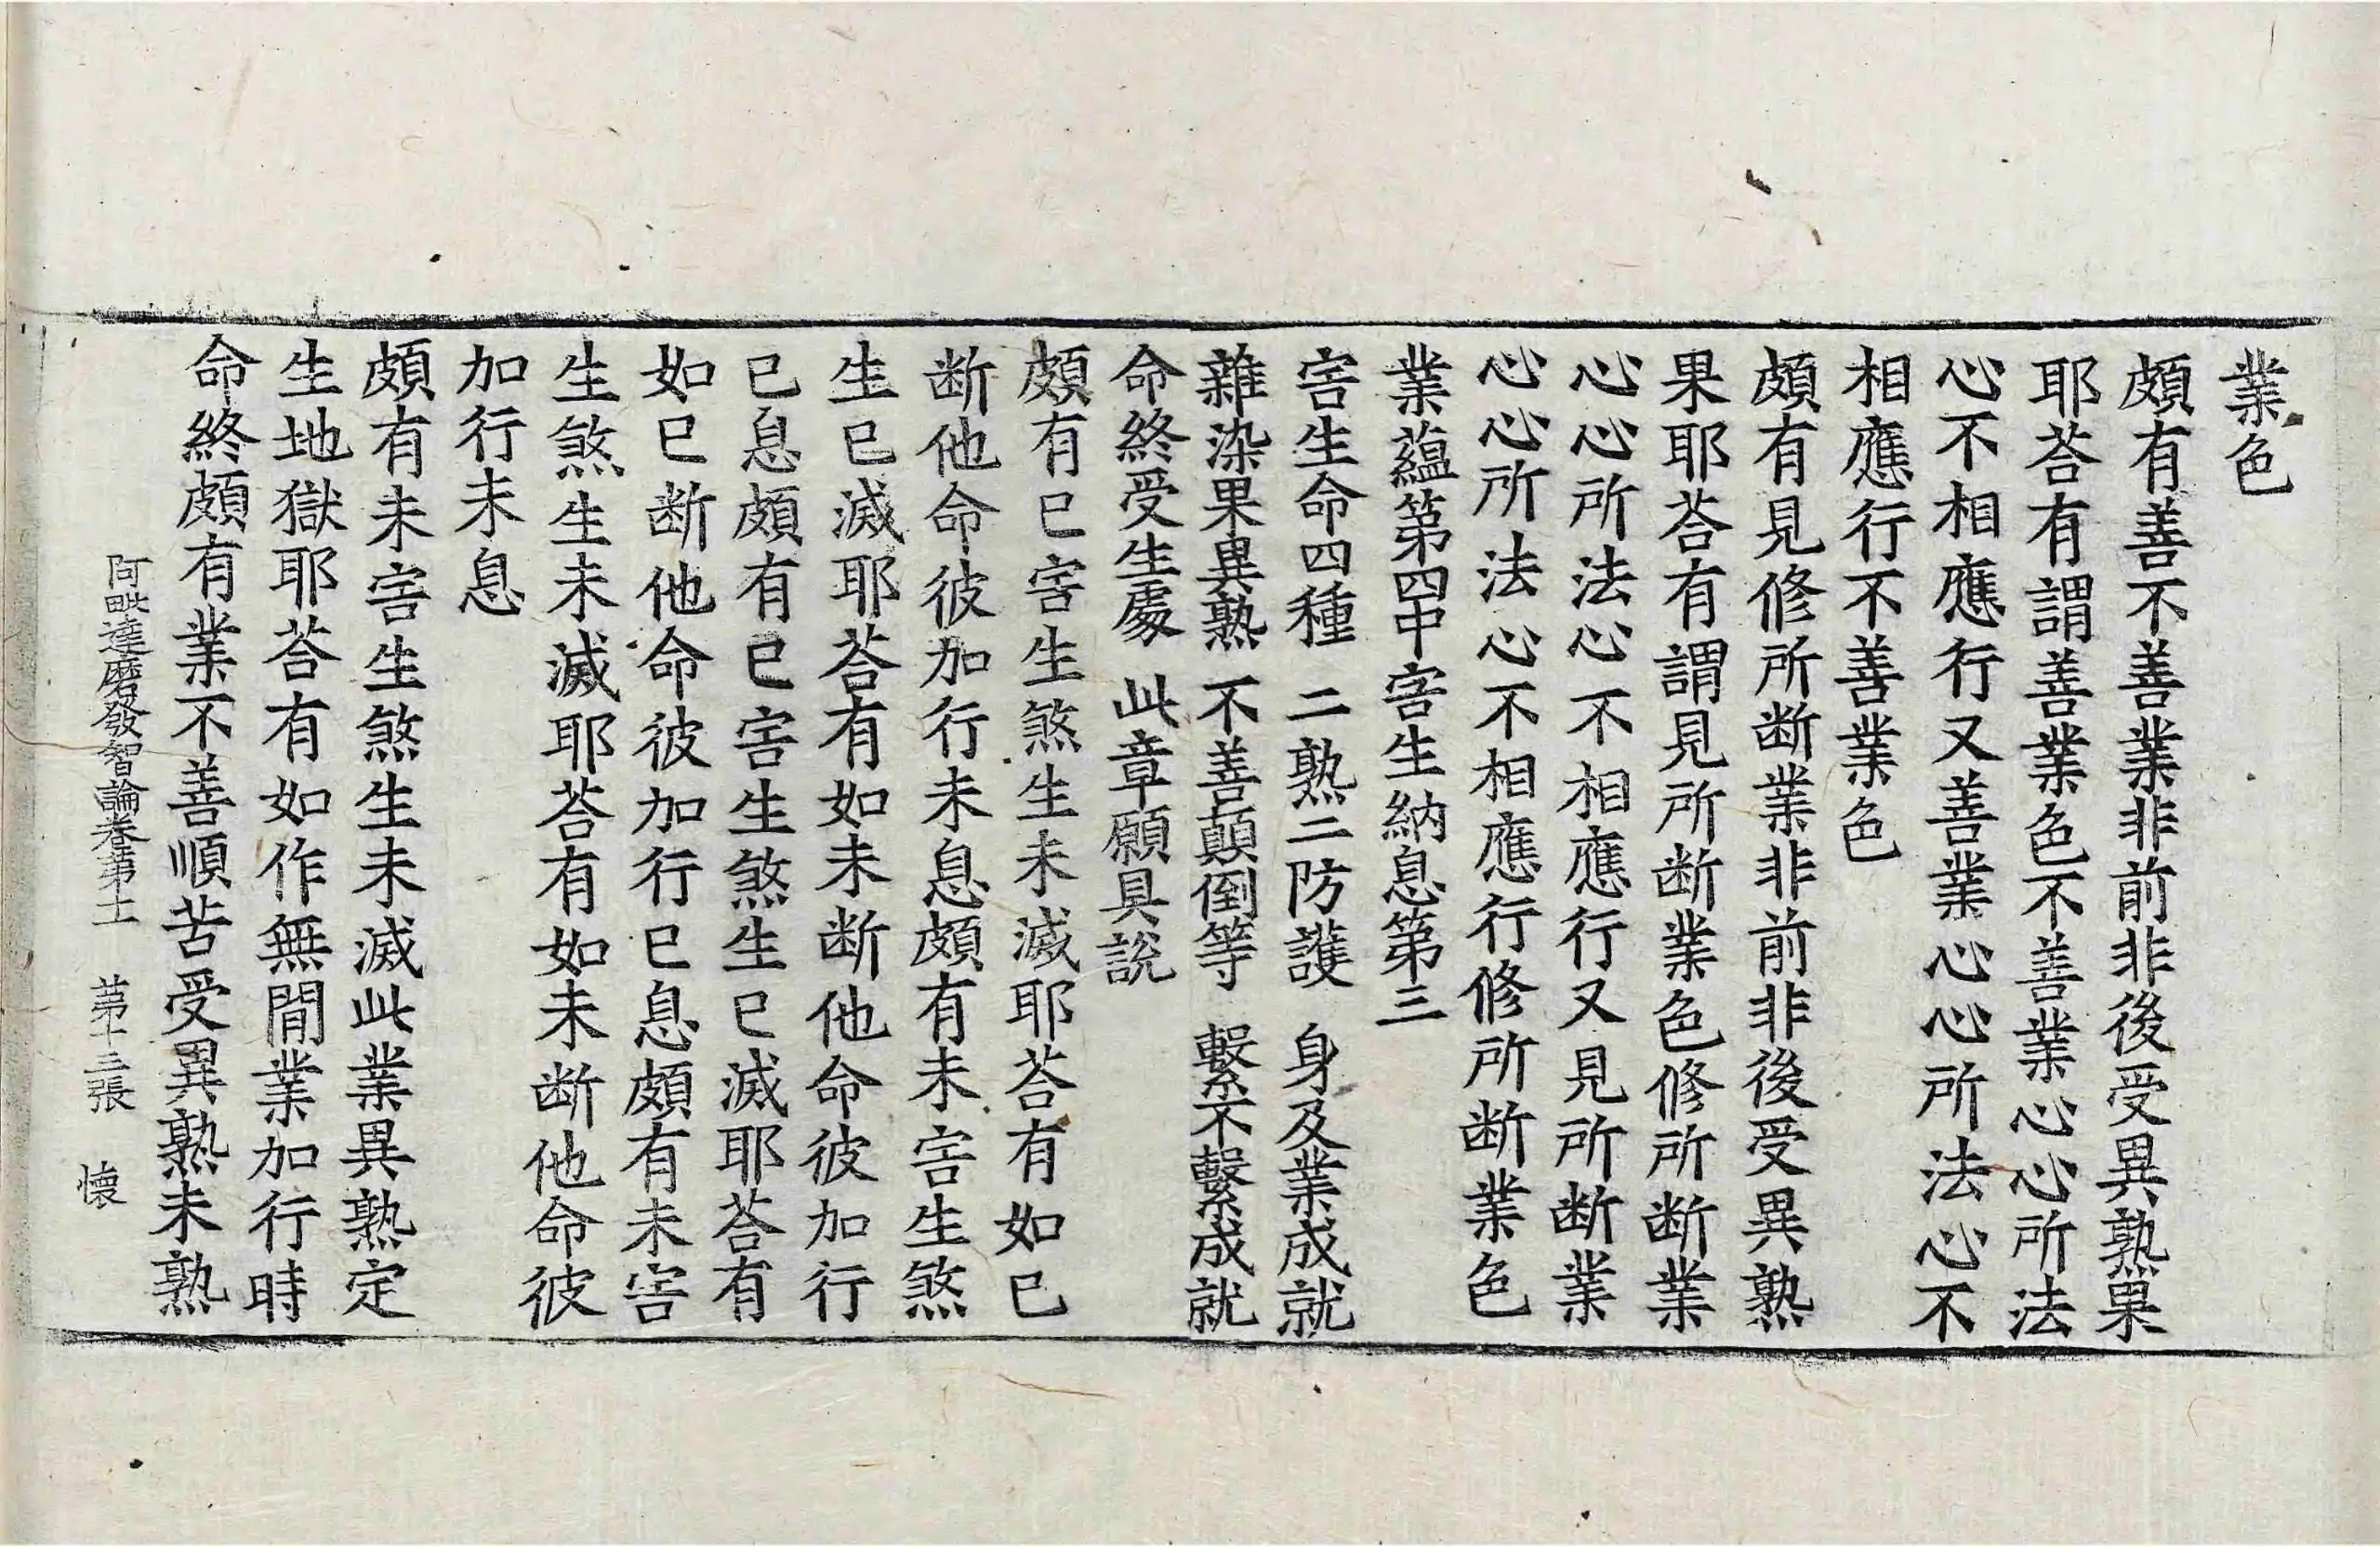 業色
頗有善不善業非前非後受異熟果
耶荅有謂善業色不善業心心所法
心不相應行又善業心心所法心不
相應行不善業色
頗有見修所断業非前非後受異熟
果耶荅有謂見所断業色修所断業
心心所法心不相應行又見所断業
心心所法心不相應行修所断業色
業蘊第四中害生納息第三
害生命四種　二熟二防護　身及業成就
雜染果異熟　不善顛倒等　繫不繫成就
命終受生處　此章願具說
頗有已害生煞生未滅耶荅有如已
断他命彼加行未息頗有未害生煞
生已滅耶荅有如未断他命彼加行
已息頗有已害生煞生已滅耶荅有
如已断他命彼加行已息頗有未害
生煞生未滅耶荅有如未断他命彼
加行未息
頗有未害生煞生未滅此業異熟定
生地獄耶荅有如作無間業加行時
命終頗有業不善順苦受異熟未熟
阿毗達磨發智論卷第十一　第十三張　懷